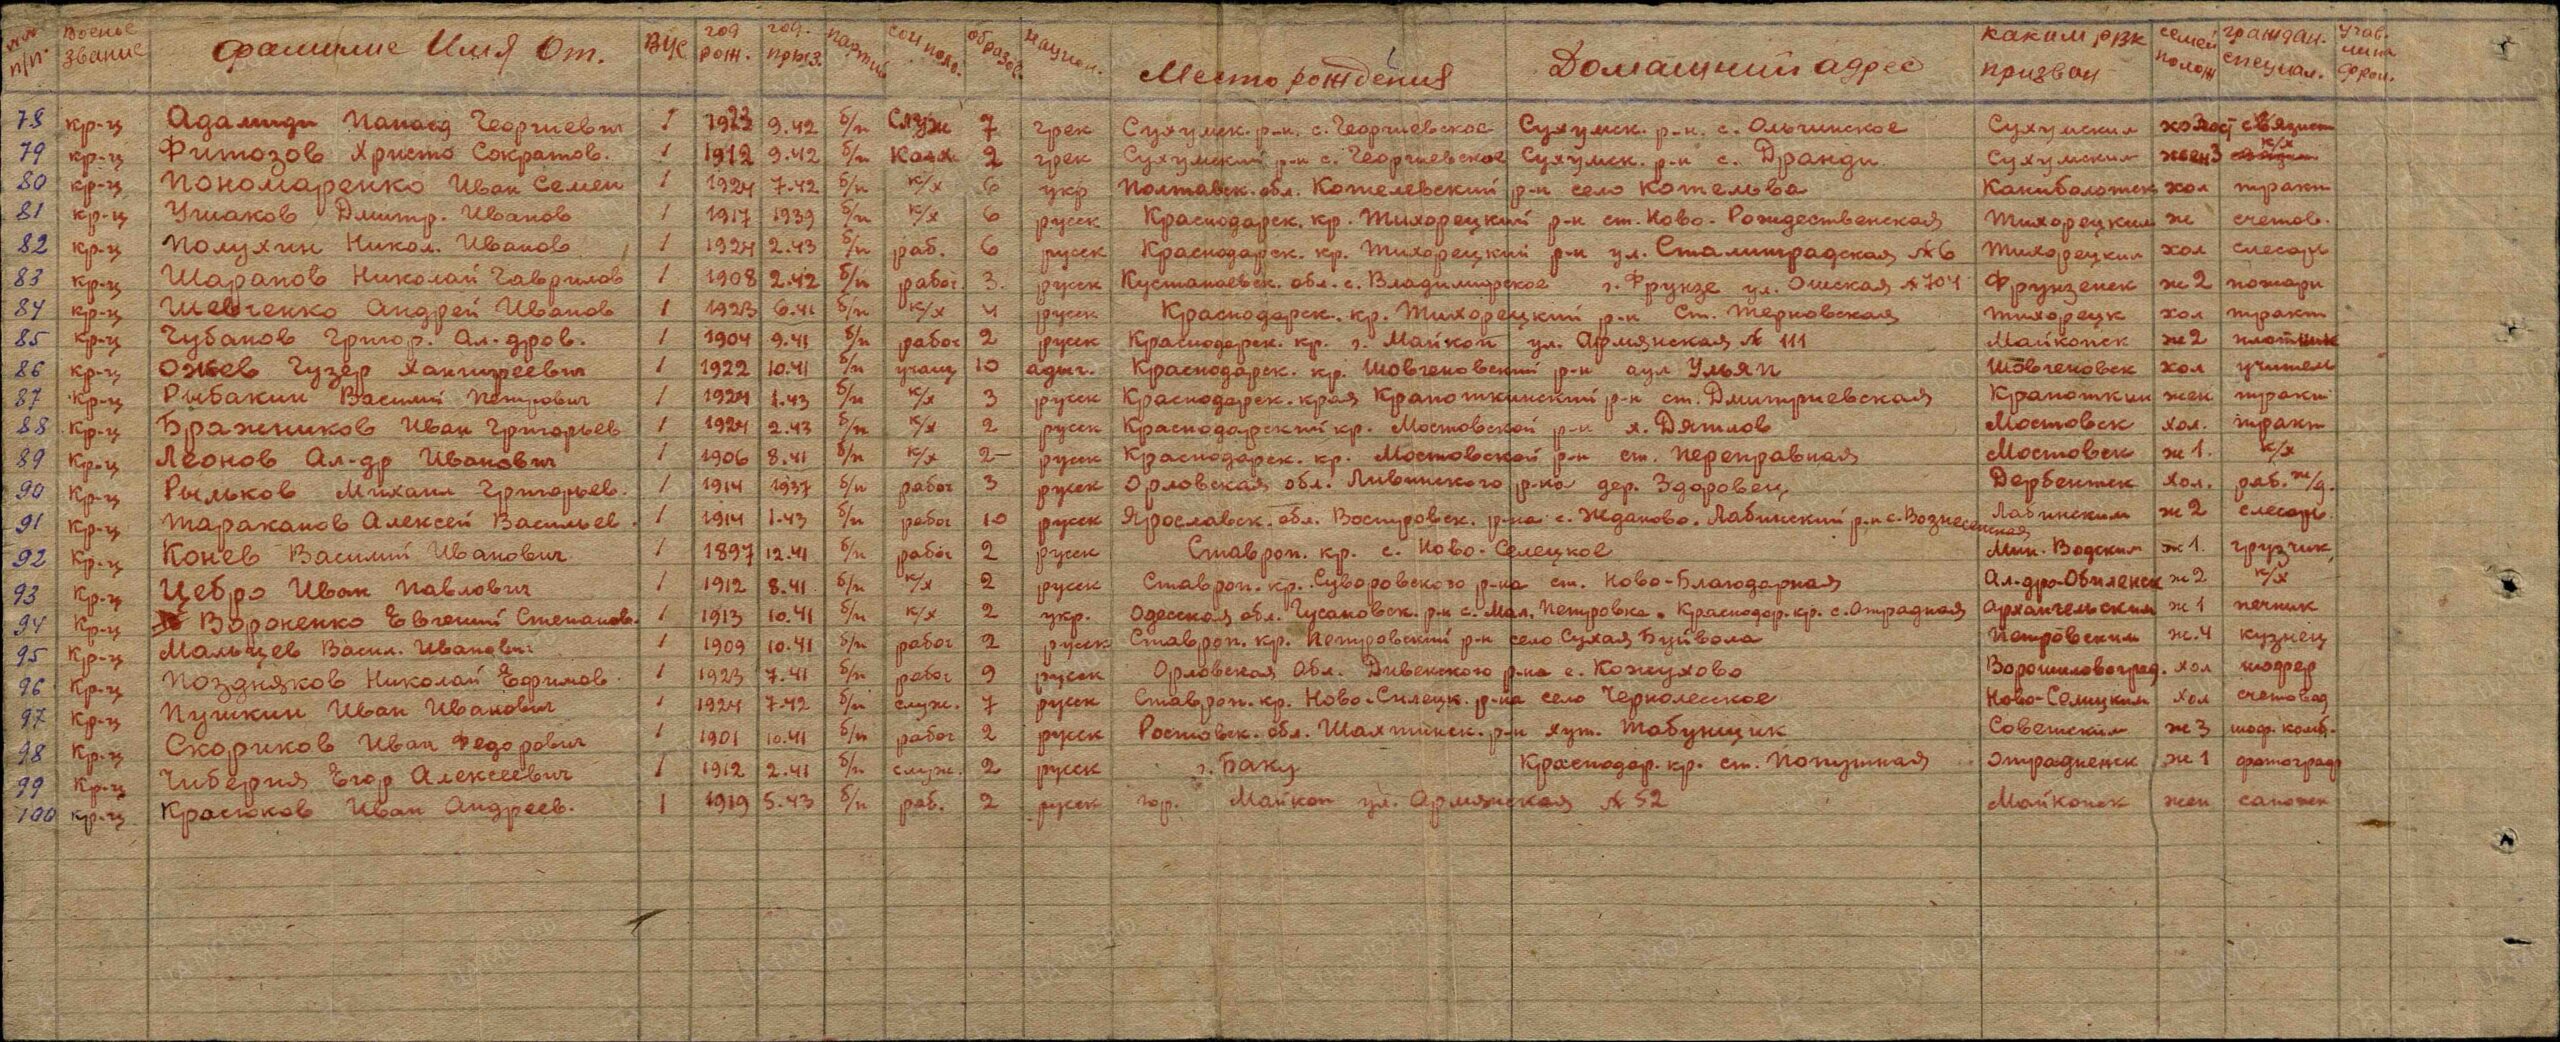 №№ п/п. Военое звание Фамилие Имя От. ВУС год рож. год. призв. партий соц полож. образов. национ. Место рождения Домашний адрес каким РВК призван семей полож граждан. специал. участ. на фрон.
78 кр-ц Адамиди Панаед Георгиевич 1 1923 9.42 б/п Служ 7 грек Сухумск. р-н. с. Георгиевское Сухумск. р-н. с. Ольгинское Сухумский холост связист
79 кр-ц Фитозов Христо Сократов. 1 1912 9.42 б/п Колх 2 грек Сухумский р-н с. Георгиевское Сухумск. р-н с. Дранди Сухумский жен 3 к/х
80 кр-ц Пономаренко Иван Семен 1 1924 7.42 б/п к/х 6 укр Полтавск. обл. Котелевский р-н село Котельва хол тракт
81 кр-ц Ушаков Дмитр. Иванов 1 1917 1939 б/п к/х 6 русск Краснодарск. кр. Тихорецкий р-н ст. Ново-Рождественская Тихорецким ж счетов.
82 кр-ц Полухин Никол. Иванов 1 1924 2.43 б/п раб. 6 русск Краснодарск. кр. Тихорецкий р-н ул. Сталинградская №6 Тихорецким хол слесарь
83 кр-ц Шарапов Николай Гаврилов 1 1908 2.42 б/п рабоч. 3. русск Кустанаевск. обл. с. Владимирское г. Фрунзе ул. Ошская №704 Фрунзенск ж 2 пожарн
84 кр-ц Шевченко Андрей Иванов 1 1923 6.41 б/п к/х 4 русск Краснодарск. кр. Тихорецкий р-н Ст. Терновская Тихорецк хол тракт
85 кр-ц Чубанов Григор. Ал-дров. 1 1904 9.41 б/п рабоч 2 русск Краснодарск. кр. г. Майкоп ул. Армянская № 111 Майкопск ж 2 плотник
86 кр-ц Ожев Гузер Хангиреевич 1 1922 10.41 б/п учащ 10 адыг. Краснодарск. кр. Шовгеновский р-н аул Уляп Шовгеновск хол учител
87 кр-ц Рыбакин Василий Петрович 1 1924 1.43 б/п к/х 3 русск Краснодарск. края Крапоткинский р-н ст. Дмитриевская Крапоткин жен тракт
88 кр-ц Бражников Иван Григорьев 1 1924 2.43 б/п к/х 2 русск Краснодарский кр. Мостовской р-н х. Дятлов Мостовск хол. тракт
89 кр-ц Леонов Ал-др Иванович 1 1906 8.41 б/п к/х 2- русск Краснодарск. кр. Мостовской р-н ст. Переправная Мостовск ж 1. к/х
90 кр-ц Рыльков Михаил Григорьев. 1 1914 1937 б/п рабоч 3 русск Орловская обл. Ливинского р-на дер. Здоровец Дербентск хол. раб. ж/д.
91 кр-ц Тараканов Алексей Васильев. 1 1914 1.43 б/п рабоч 10 русск Ярославск. обл. Востровск. р-на с. Жданово. Лабинский р-н с. Вознесенская Лабинским ж 2 слесарь
92 кр-ц Конев Василий Иванович 1 1897 12.41 б/п рабоч 2 русск Ставроп. кр. с. Ново-Селецкое Мин. Водским ж 1. грузчик
93 кр-ц Цебро Иван Павлович 1 1912 8.41 б/п к/х 2 русск Ставроп. кр. Суворовского р-на ст. Ново-Благодарная Ал-дро-Обиленск ж 2 к/х
94 кр-ц Вороненко Евгений Степанов. 1 1913 10.41 б/п к/х 2 укр. Одесская обл. Гусановск. р-н с. Мал. Петровка. Краснодар. кр. с. Отрадная Архангельским ж 1 печник
95 кр-ц Мальцев Васил. Иванович 1 1909 10.41 б/п рабоч 2 русск Ставроп. кр. Петровский р-н село Сухая Буйвола Петровским ж. 4 кузнец
96 кр-ц Поздняков Николай Ефимов. 1 1923 7.41 б/п рабоч 9 русск Орловская Обл. Дивенского р-на с. Кожухово Ворошиловоград. хол шофер
97 кр-ц Пушкин Иван Иванович 1 1924 7.42 б/п служ. 7 русск Ставроп. кр. Ново-Силецк. р-на село Чернолесское Ново-Селицким хол счетовод
98 кр-ц Скориков Иван Федорович 1 1901 10.41 б/п рабоч 2 русск Ростовск. обл. Шахтинск. р-н хут. Табунщик Советским ж 3 шоф. комб.
99 кр-ц Чиберия Егор Алексеевич 1 1912 2.41 б/п служ. 2 русск г. Баку Краснодар. кр. ст. Попутная Отрадненск ж 1 фотограф
100 кр-ц Красюков Иван Андреев. 1 1919 5.43 б/п раб. 2 русск гор. Майкоп ул. Армянская № 52 Майкопск жен сапожн